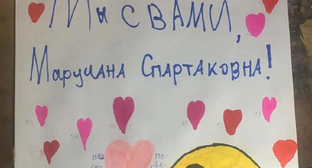 Мы С ВАМИ,
Маруцана Спартаковна!